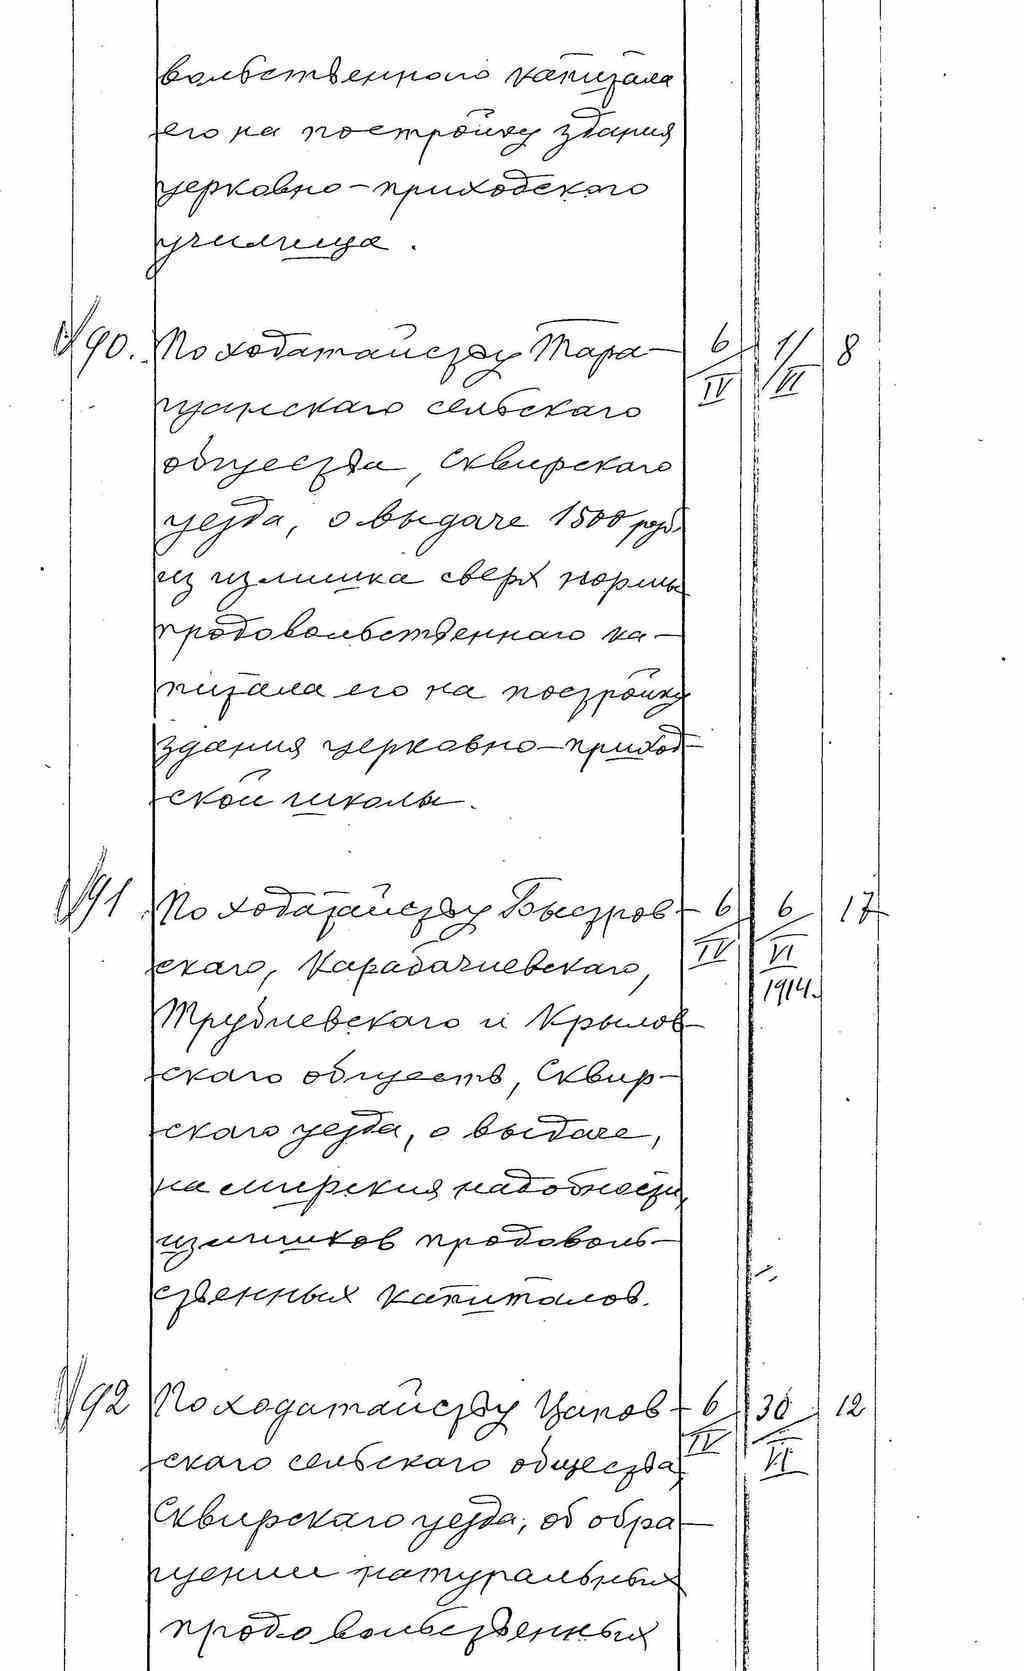 вольственного капитала
его на постройку здания
церковно-приходского
училища.
90. По ходатайству Тара- 6/IV 1/VI 8
щанскаго сельскаго
общества, Сквирскаго
уезда, о выдаче 1500 руб.
из излишка сверх нормы
продовольственнаго ка-
питала его на постройку
здания церковно-приход-
ской школы.
91 По ходатайству Быстров- 6/IV 6/VI 1914. 17
скаго, Карабачиевскаго,
Трубиевскаго и Крылов-
скаго обществ, Сквир-
скаго уезда, о выдаче,
на мирския надобности,
излишков продоволь-
ственных капиталов.
92 По ходатайству Цапов- 6/IV 30/VI 12
скаго сельскаго общества,
Сквирскаго уезда, об обра-
щении натуральных
продовольственных